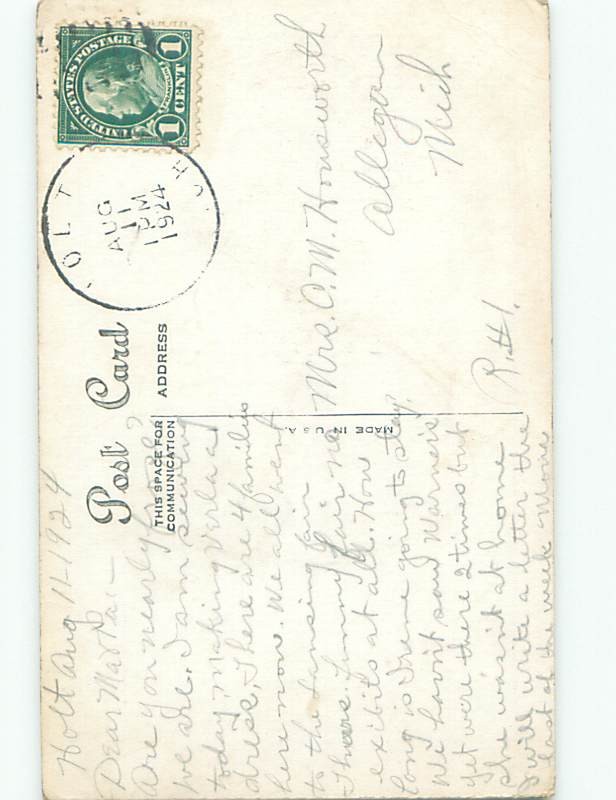 UNITED STATES POSTAGE
FRANKLIN
1 CENT 1
OLT
CH
AUG
11
1 PM
1924
Post Card
THIS SPACE FOR
COMMUNICATION
ADDRESS
MADE IN U.S.A.
Mrs. A.M. Housworth
Allegan
Mich
R.#1.
Holt Aug 11-1924
Dear Ma & Pa:-
Are you nearly
we are. I am sewing
today. Making Verla a
dress. There are 4 families
here now. We all went
to the Lansing fair
Thurs. Funny fair no
exibits at all. How
long is Irene going to stay?
We havn't saw Warner's
yet were there 2 times but
she wasn't at home
I will write a letter the
last of the week